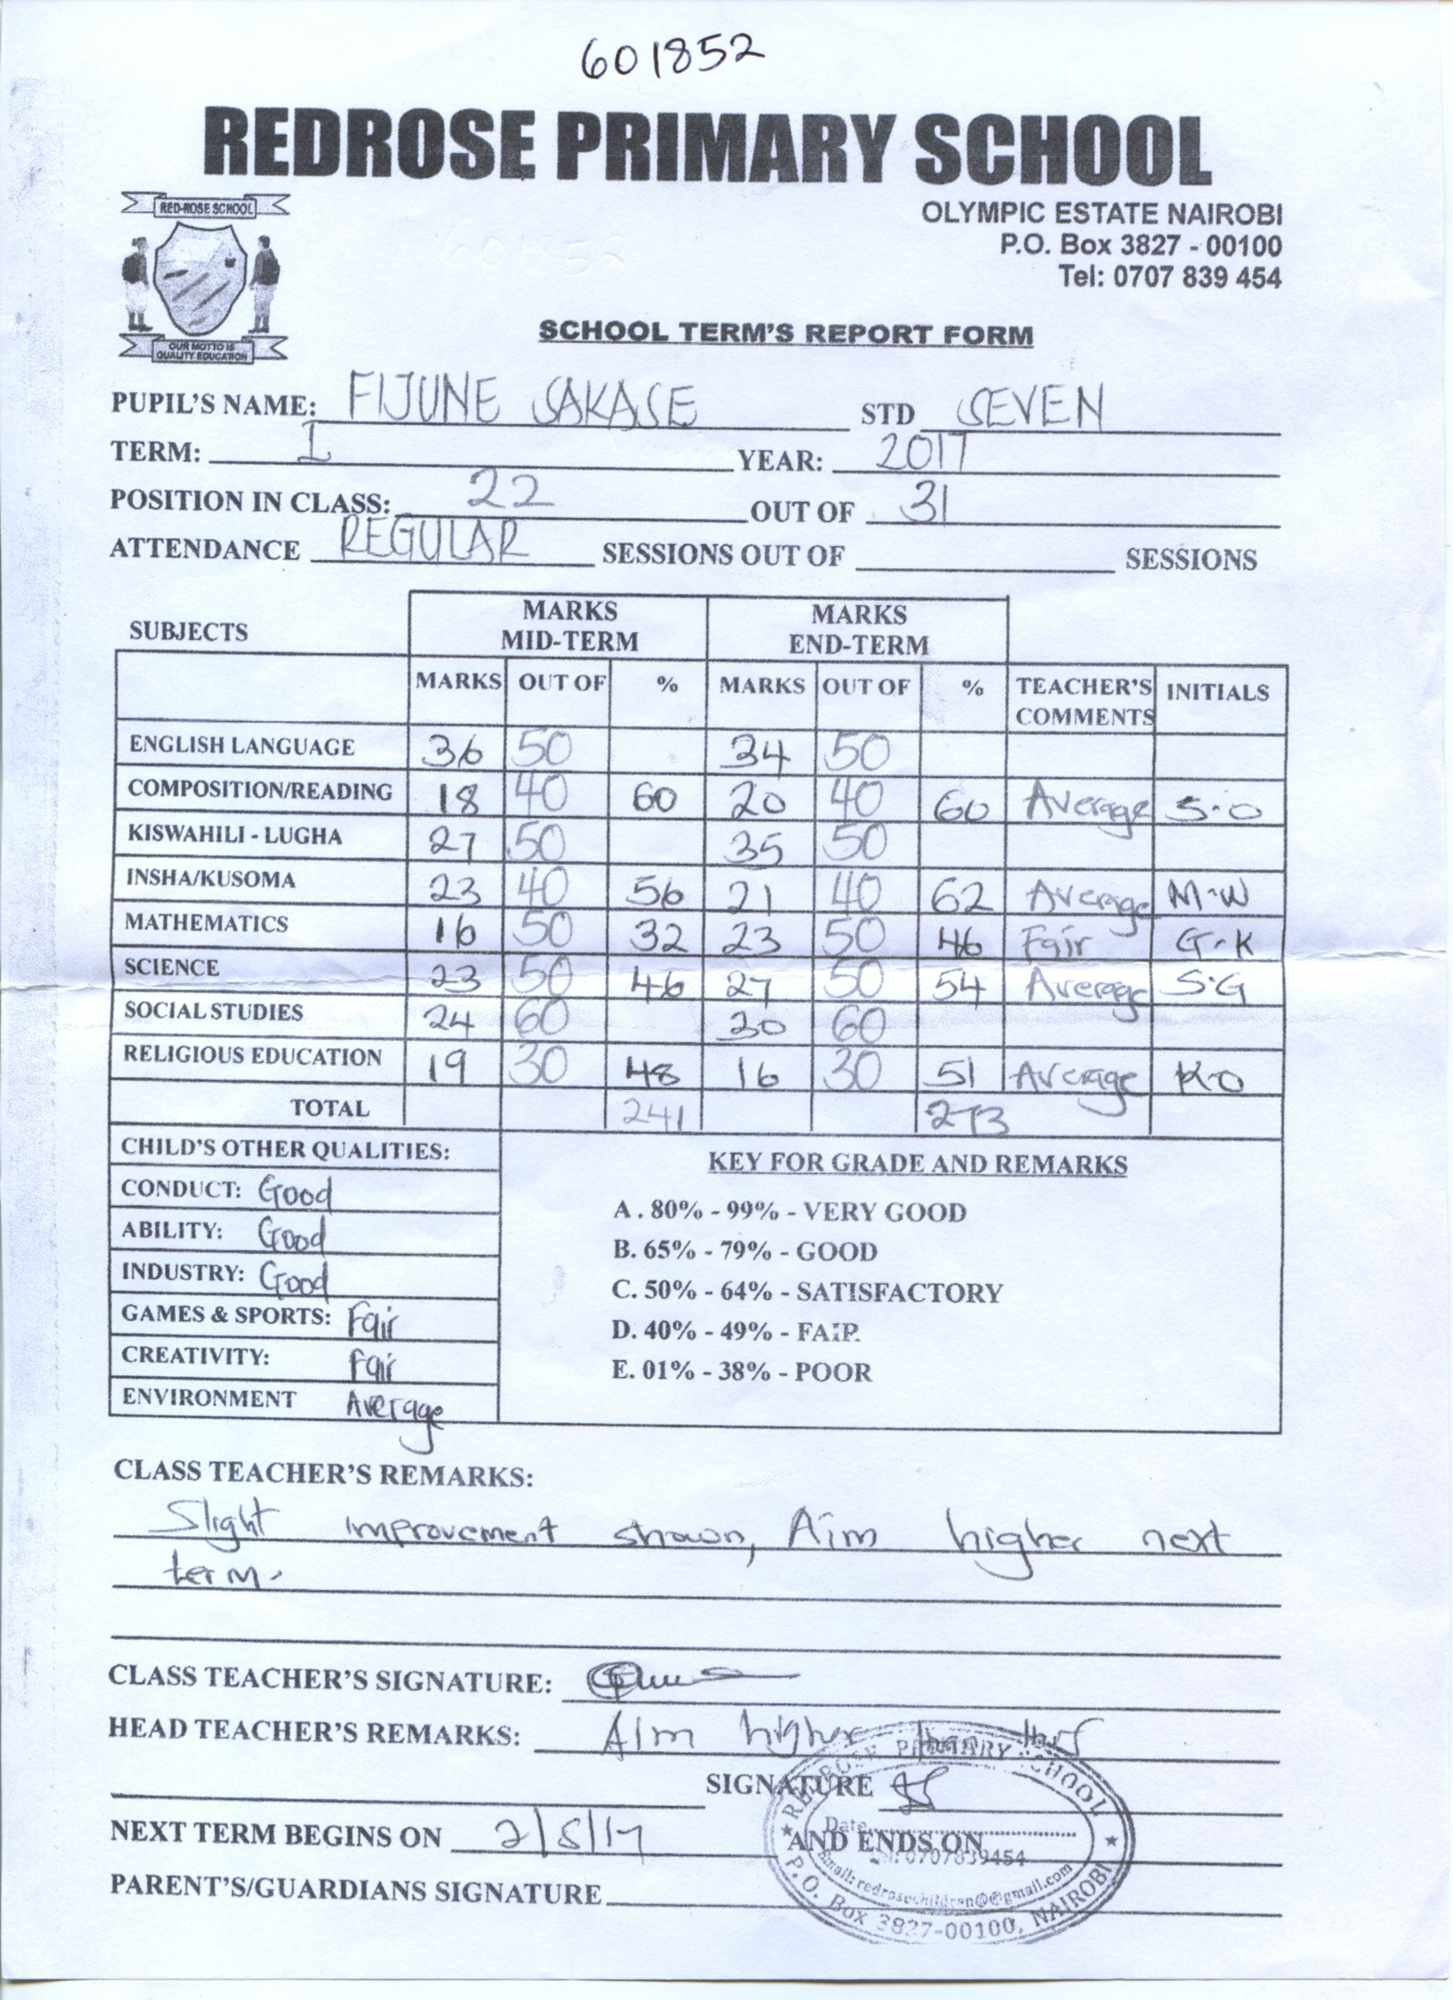 601852
REDROSE PRIMARY SCHOOL
RED-ROSE SCHOOL
OUR MOTTO IS
QUALITY EDUCATION
OLYMPIC ESTATE NAIROBI
P.O. Box 3827 - 00100
Tel: 0707 839 454
SCHOOL TERM'S REPORT FORM
PUPIL'S NAME: FIJUNE SAKASE STD SEVEN
TERM: I YEAR: 2017
POSITION IN CLASS: 22 OUT OF 31
ATTENDANCE REGULAR SESSIONS OUT OF SESSIONS
SUBJECTS MARKS MID-TERM MARKS END-TERM
MARKS OUT OF % MARKS OUT OF % TEACHER'S COMMENTS INITIALS
ENGLISH LANGUAGE 36 50 34 50
COMPOSITION/READING 18 40 60 20 40 60 Average S.O
KISWAHILI - LUGHA 27 50 35 50
INSHA/KUSOMA 23 40 56 21 40 62 Average M.W
MATHEMATICS 16 50 32 23 50 46 Fair G.K
SCIENCE 23 50 46 27 50 54 Average S.G
SOCIAL STUDIES 24 60 30 60
RELIGIOUS EDUCATION 19 30 48 16 30 51 Average K.O
TOTAL 241 273
CHILD'S OTHER QUALITIES:
CONDUCT: Good
ABILITY: Good
INDUSTRY: Good
GAMES & SPORTS: Fair
CREATIVITY: Fair
ENVIRONMENT Average
KEY FOR GRADE AND REMARKS
A. 80% - 99% - VERY GOOD
B. 65% - 79% - GOOD
C. 50% - 64% - SATISFACTORY
D. 40% - 49% - FAIR
E. 01% - 38% - POOR
CLASS TEACHER'S REMARKS:
Slight improvement shown, Aim higher next
term.
CLASS TEACHER'S SIGNATURE:
HEAD TEACHER'S REMARKS: Aim higher than this
SIGNATURE
NEXT TERM BEGINS ON 2/5/17 AND ENDS ON
PARENT'S/GUARDIANS SIGNATURE
REDROSE PRIMARY SCHOOL
Date
0707839454
Email: redrosechildren@gmail.com
P.O. Box 3827-00100, NAIROBI